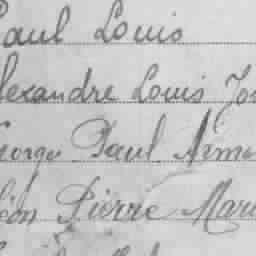 Paul Louis
lexandre Louis Jos
eorge Paul Arma
éon Pierre Mari